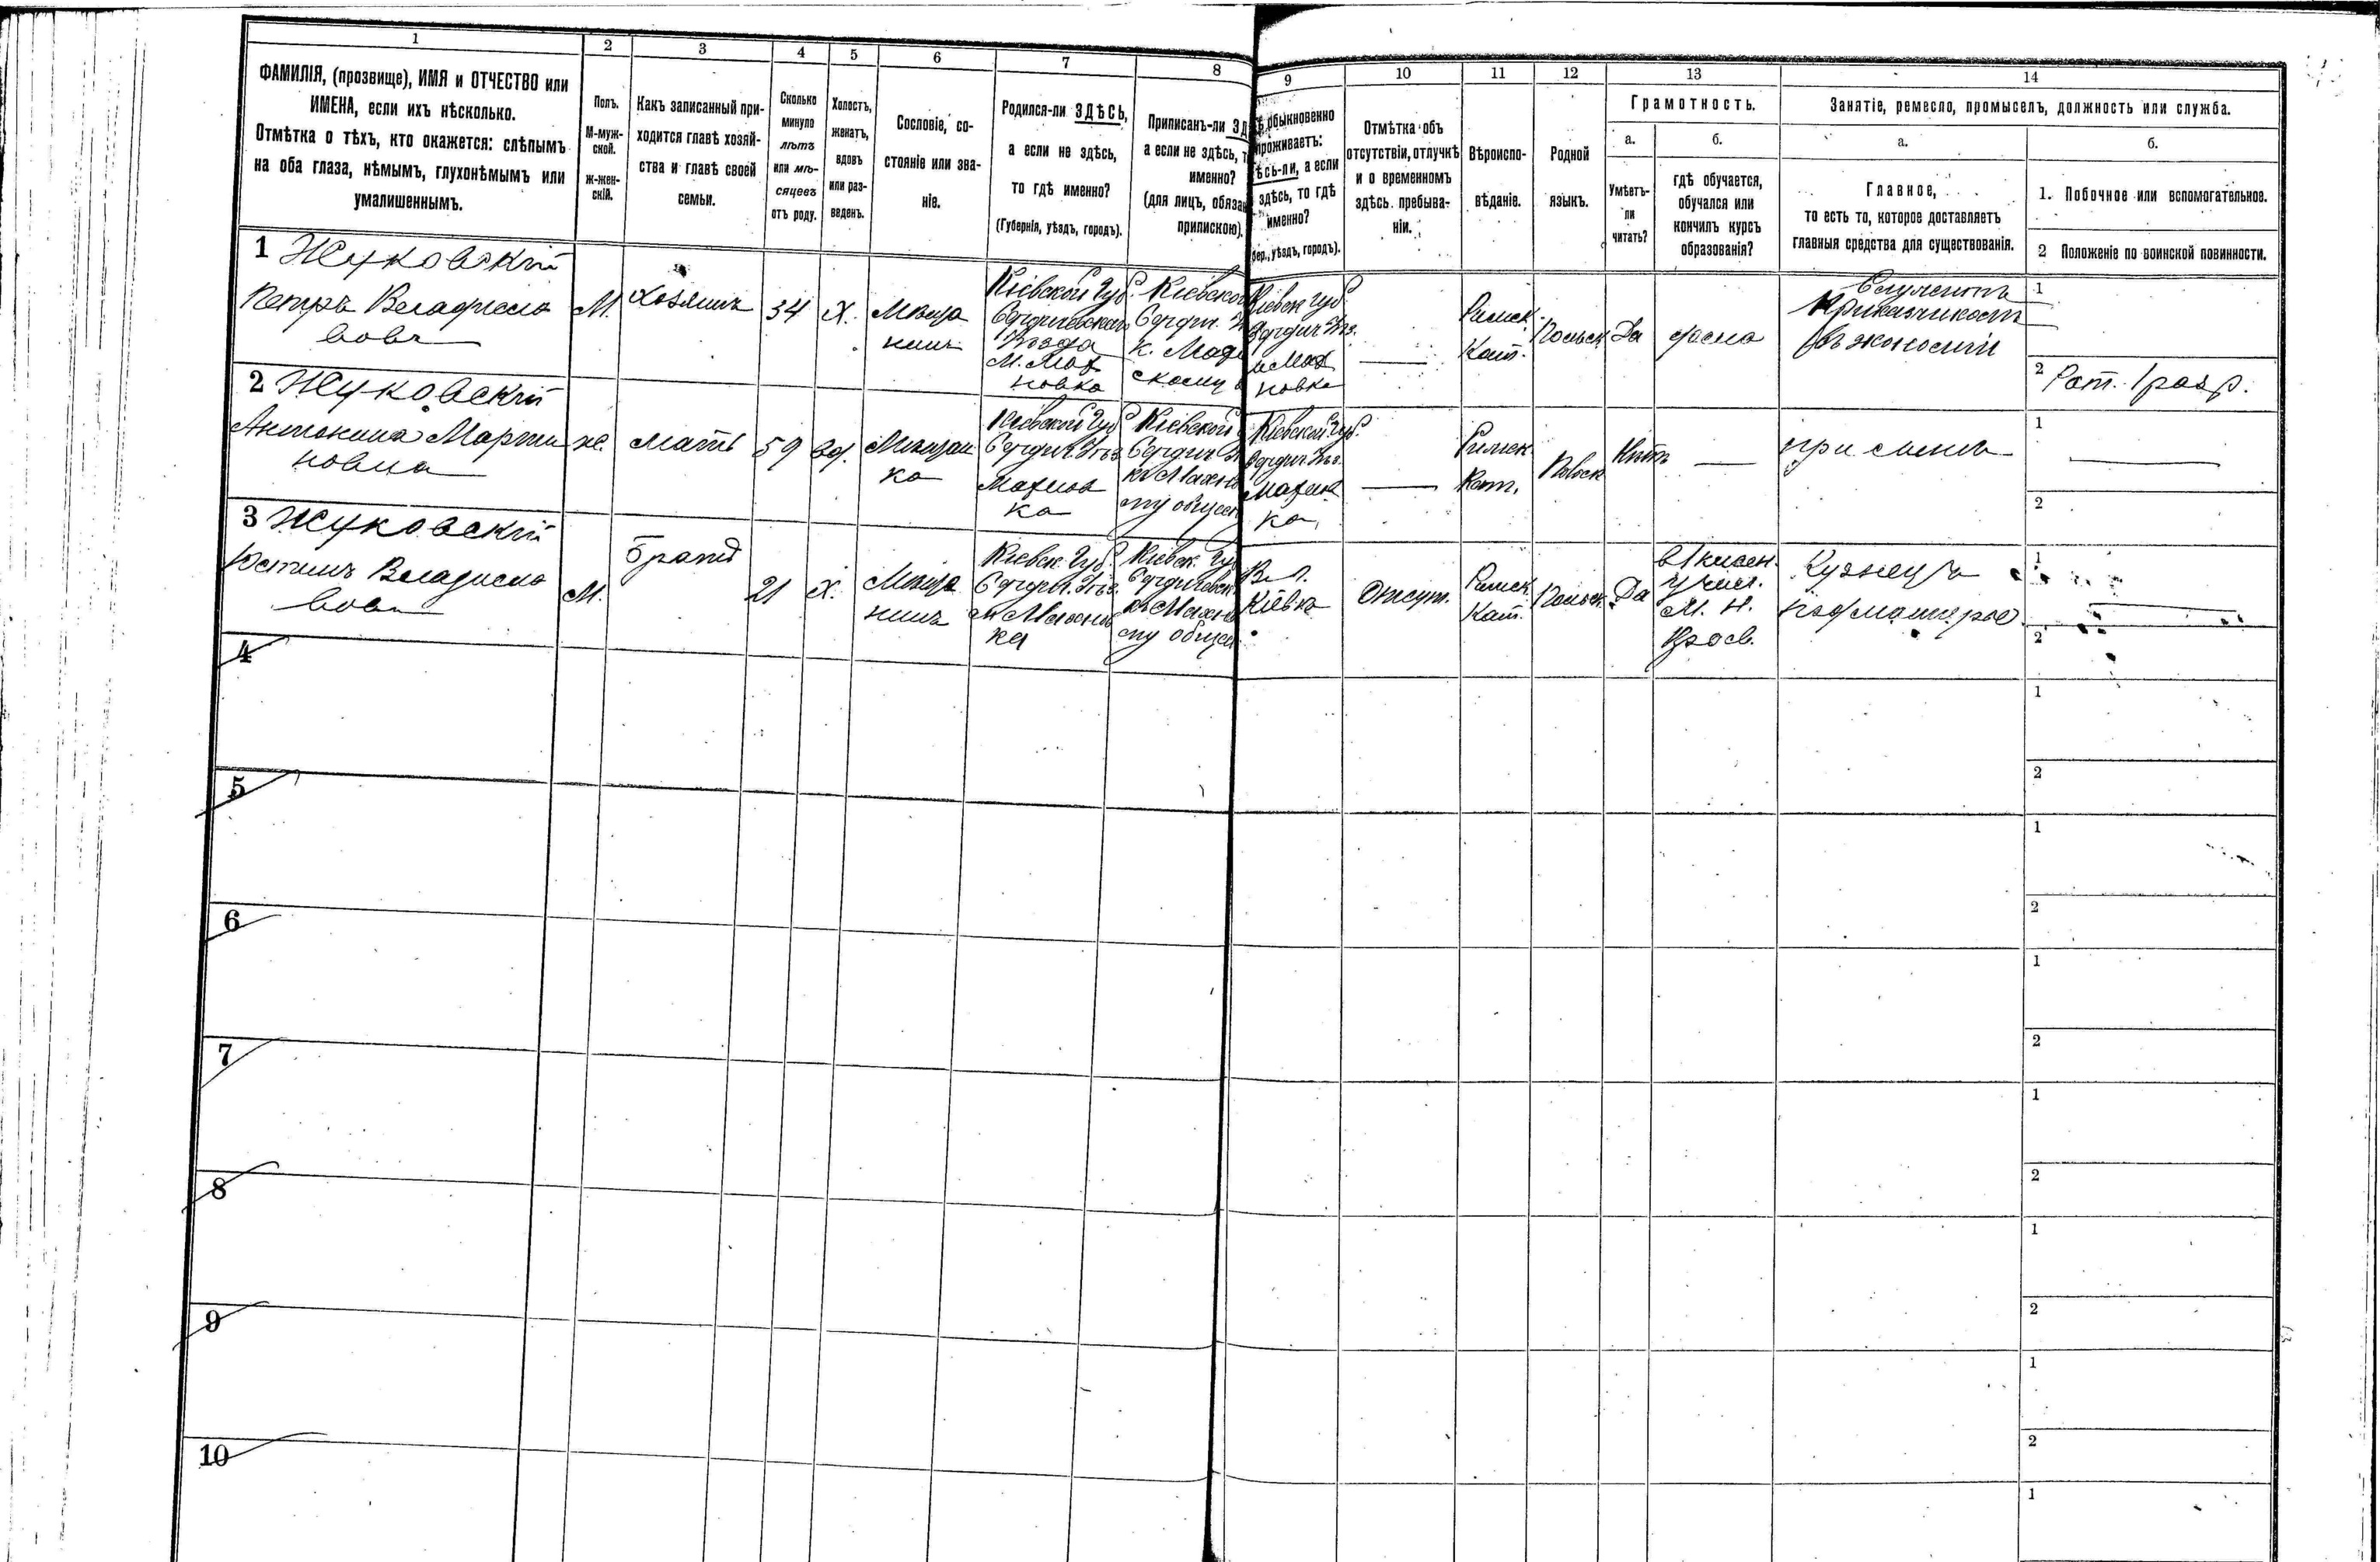 1
2
3
4
5
6
7
8
9
10
11
12
13
14
ФАМИЛІЯ, (прозвище), ИМЯ и ОТЧЕСТВО или
ИМЕНА, если ихъ нѣсколько.
Отмѣтка о тѣхъ, кто окажется: слѣпымъ
на оба глаза, нѣмымъ, глухонѣмымъ или
умалишеннымъ.
Полъ.
М-муж-
ской.
ж-жен-
скій.
Какъ записанный при-
ходится главѣ хозяй-
ства и главѣ своей
семьи.
Сколько
минуло
лѣтъ
или мѣ-
сяцевъ
отъ роду.
Холостъ,
женатъ,
вдовъ
или раз-
веденъ.
Сословіе, со-
стояніе или зва-
ніе.
Родился-ли ЗДѢСЬ,
а если не здѣсь,
то гдѣ именно?
(Губернія, уѣздъ, городъ).
Приписанъ-ли
а если не здѣсь,
именно?
(для лицъ,
припискою).
обыкновенно
проживаетъ:
а если
здѣсь, то гдѣ
именно?
уѣздъ, городъ).
Отмѣтка объ
отсутствіи, отлучкѣ
и о временномъ
здѣсь пребыва-
ніи.
Вѣроиспо-
вѣданіе.
Родной
языкъ.
Грамотность.
а.
Умѣетъ-
ли
читать?
б.
гдѣ обучается,
обучался или
кончилъ курсъ
образованія?
Занятіе, ремесло, промыселъ, должность или служба.
а.
Главное,
то есть то, которое доставляетъ
главныя средства для существованія.
б.
1. Побочное или вспомогательное.
2 Положеніе по воинской повинности.
1 Жуковскій
Петръ Владисла
вовъ
М.
Хозяинъ
34
Х.
Мѣща
нинъ
Кіевской Губ.
Бердичевскаго
Уѣзда
М. Мах
новка
Кіевской
Бердич.
к. Махн
скому
Кіевск Губ.
Бердич Уѣз.
м Мах
новка
Римск.
Кат.
Польск
Да
дома
Приказчикомъ
въ экономіи
1
2 Рат. 1 разр.
2 Жуковскій
Антонина Марти
новна
ж.
мать
59
вд.
Мѣщан
ка
Кіевской Губ
Бердич. Уѣз
Махнов
ка
Кіевской
Бердич
къ Махно
му общест
Кіевской Губ.
Бердич. Уѣз.
Махнов
ка
Римск
Кат.
Польск
Нѣтъ
при сынѣ
1
2
3 Жуковскій
Юстинъ Владисла
вовъ
М.
братъ
21
Х.
Мѣща
нинъ
Кіевск. Губ.
Бердич. Уѣз.
м Махнов
ка
Кіевск. Гу
Бердичевск
къ Махно
му общес
Отсут.
Римск
Кат.
Польск
Да
учил.
М. Н.
Просв.
Кузнецъ
1
2
4
1
2
5
1
2
6
1
2
7
1
2
8
1
2
9
1
2
10
1